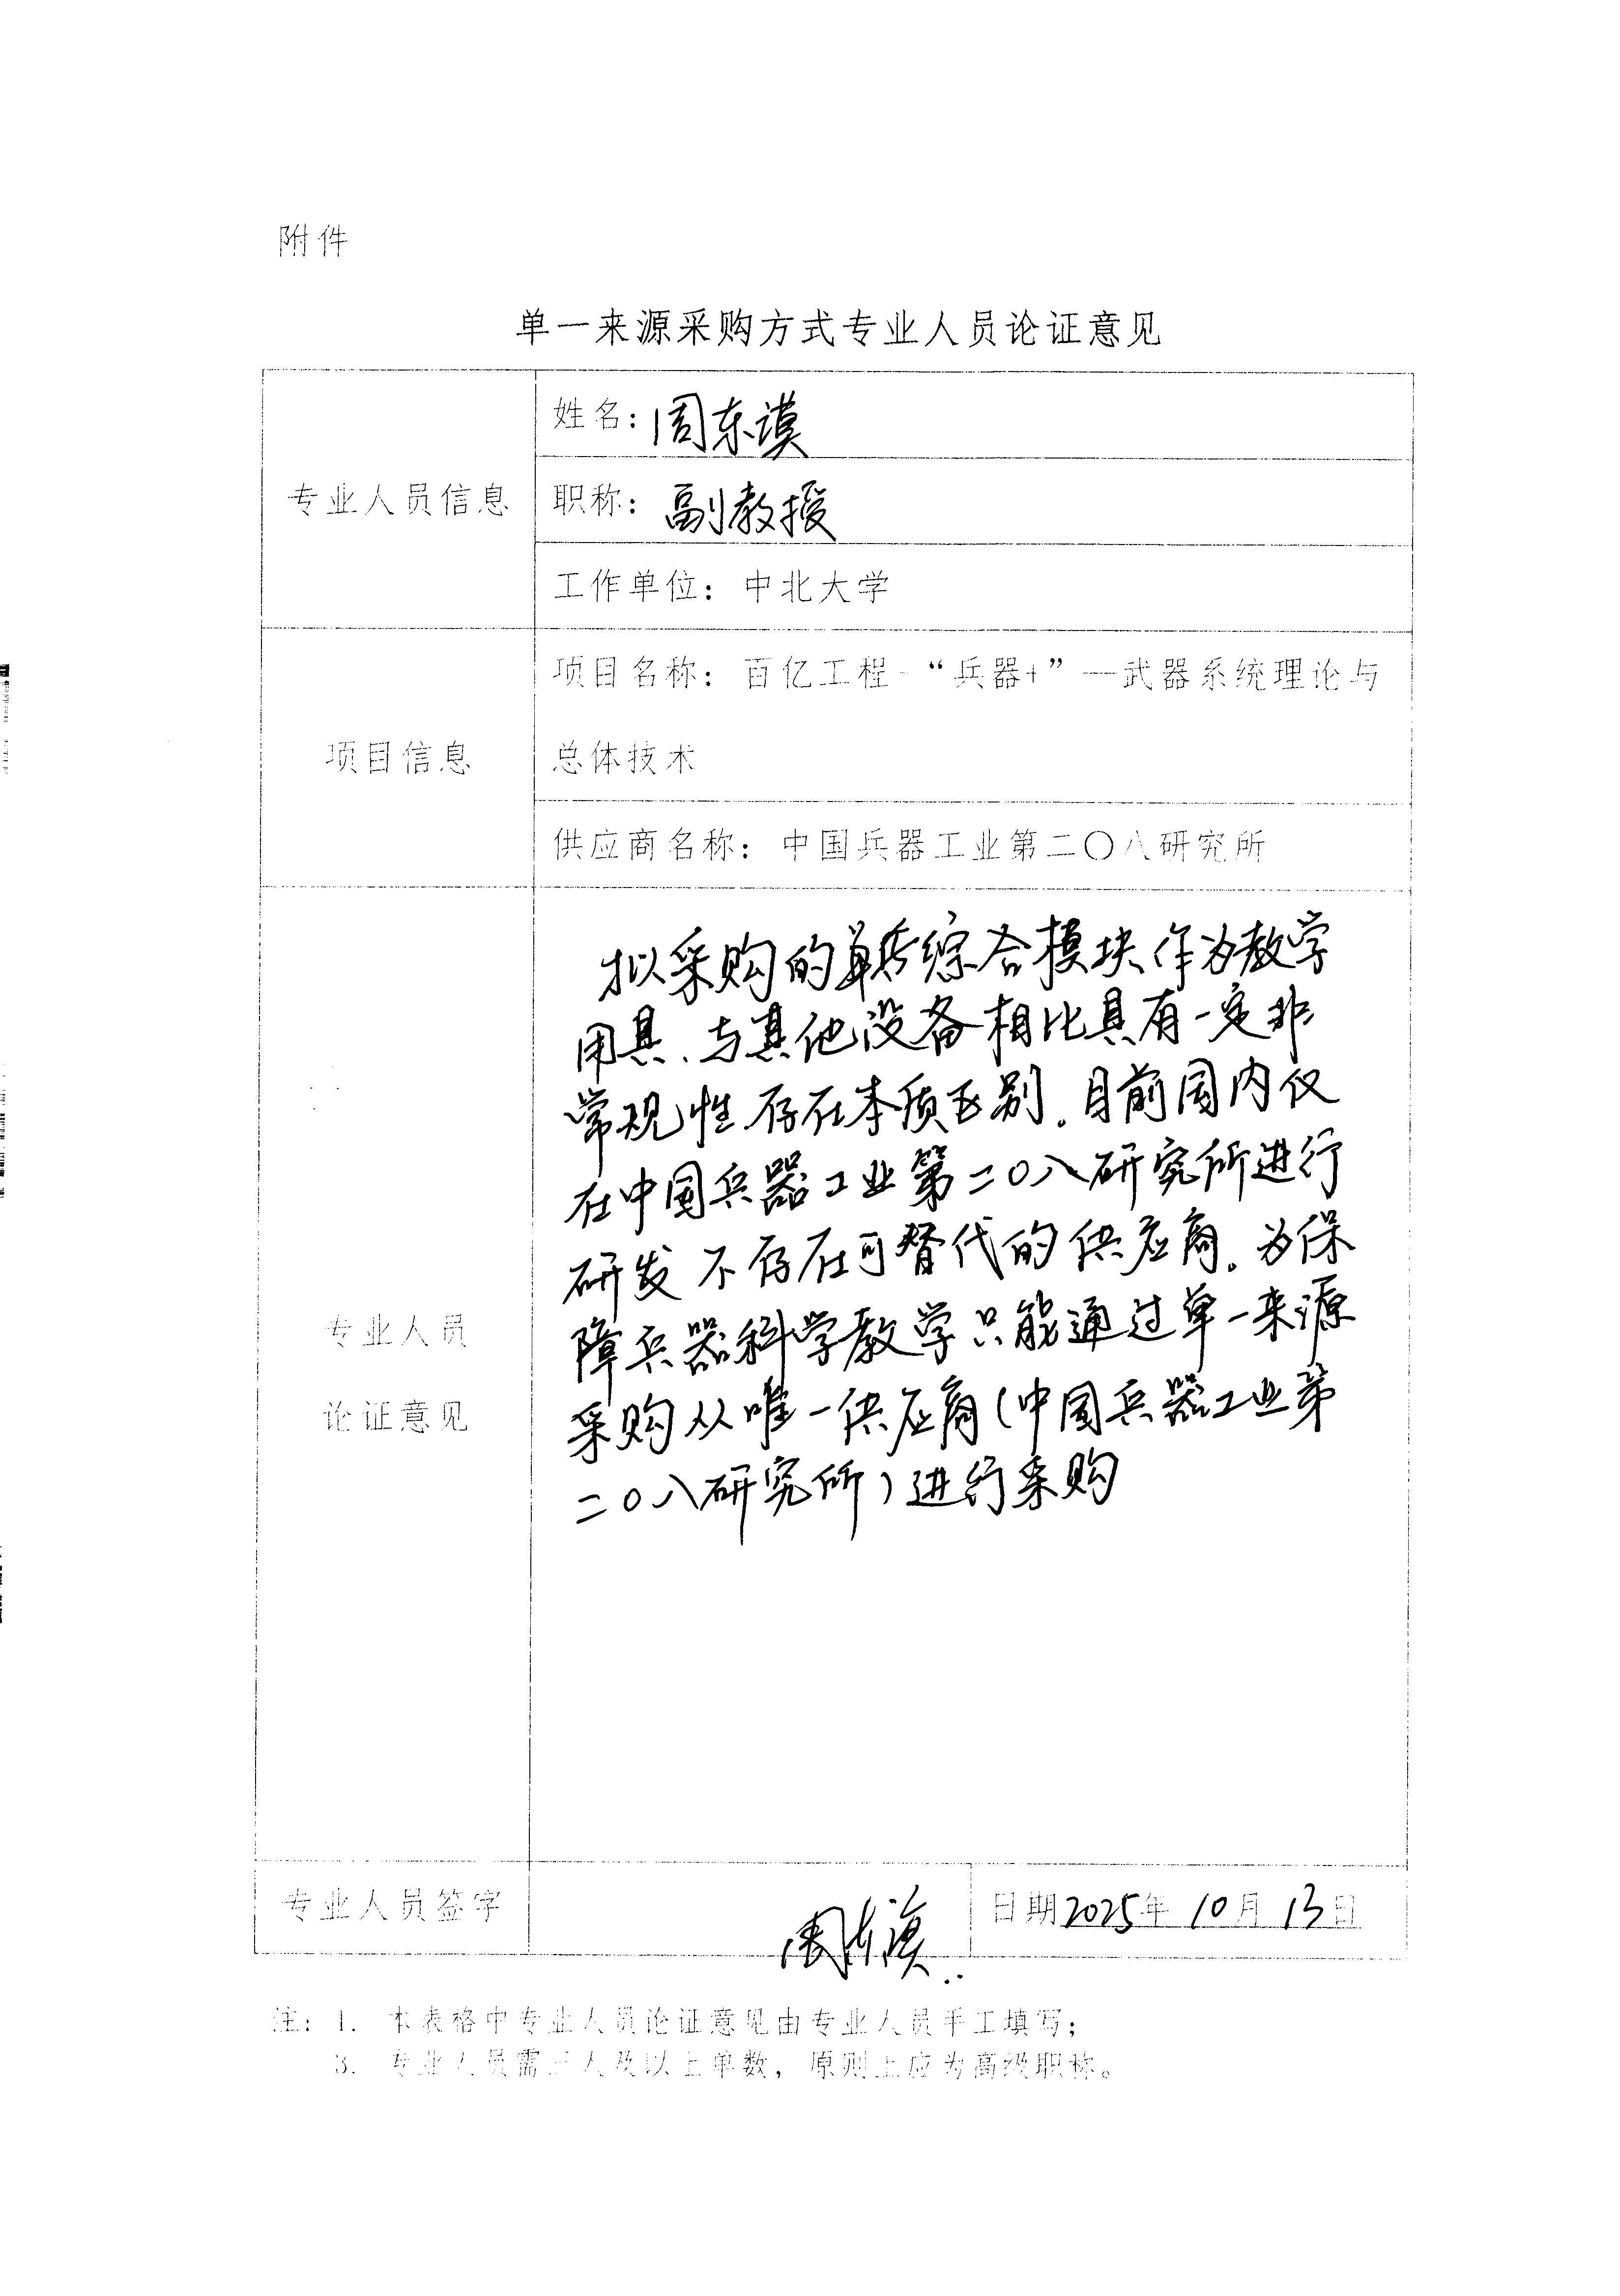 附件
单一来源采购方式专业人员论证意见
专业人员信息
姓名：周东谟
职称：副教授
工作单位：中北大学
项目信息
项目名称：百亿工程-“兵器+”—武器系统理论与
总体技术
供应商名称：中国兵器工业第二〇八研究所
专业人员
论证意见
拟采购的单兵综合模块作为教学
用具、与其他设备相比具有一定非
常规性存在本质区别。目前国内仅
在中国兵器工业第二〇八研究所进行
研发不存在可替代的供应商。为保
障兵器科学教学只能通过单一来源
采购从唯一供应商(中国兵器工业第
二〇八研究所)进行采购
专业人员签字
周东谟
日期2025年10月13日
注：1. 本表格中专业人员论证意见由专业人员手工填写；
3. 专业人员需三人及以上单数，原则上应为高级职称。